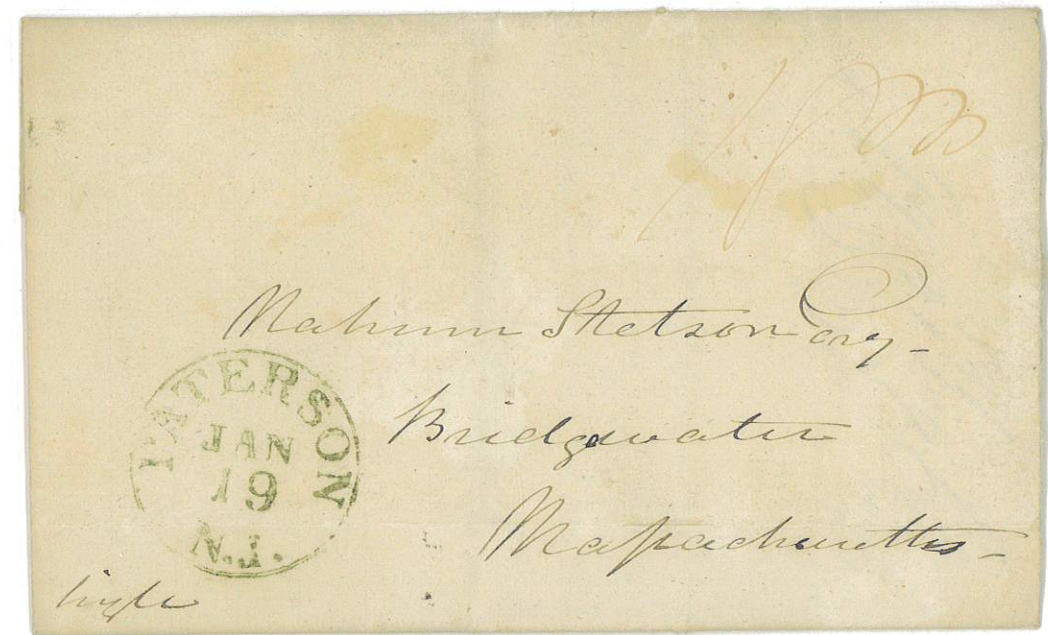 Nahum Stetson Esq -
Bridgewater
Massachusetts -
PATERSON
JAN
19
N.J.
Single